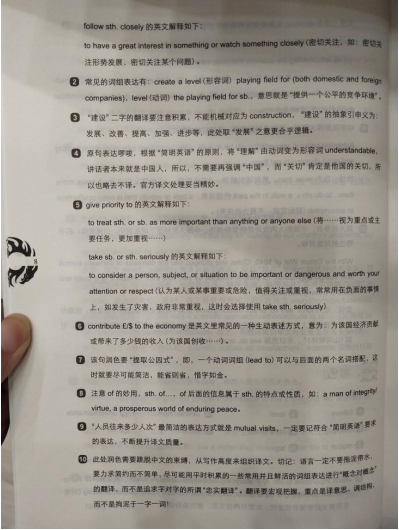 follow sth. closely 的英文解释如下：
to have a great interest in something or watch something closely (密切关注，如：密切关
注形势发展，密切关注某个问题)。
2 常见的词组表达有：create a level (形容词) playing field for (both domestic and foreign
companies)，level (动词) the playing field for sb.，意思就是“提供一个公平的竞争环境”。
3 “建设”二字的翻译要注意积累，不能机械对应为 construction，“建设”的抽象引申义为：
发展、改善、提高、加强、进步等，此处取“发展”之意更合乎逻辑。
4 原句表达啰唆，根据“简明英语”的原则，将“理解”由动词变为形容词 understandable，
讲话者本来就是中国人，所以，不需要再强调“中国”，而“关切”肯定是他国的关切，所
以也略去不译。官方译文处理妥当精妙。
5 give priority to 的英文解释如下：
to treat sth. or sb. as more important than anything or anyone else (将……视为重点或主
要任务，更加重视……)
take sb. or sth. seriously 的英文解释如下：
to consider a person, subject, or situation to be important or dangerous and worth your
attention or respect (认为某人或某事重要或危险，值得关注或重视，常常用在负面的事情
上，如发生了灾害，政府非常重视，这时会选择使用 take sth. seriously)
6 contribute £/$ to the economy 是英文里常见的一种生动表达方式，意为：为该国经济贡献
或带来了多少钱的收入 (为该国创收……)。
7 该句润色要“提取公因式”，即，一个动词词组 (lead to) 可以与后面的两个名词搭配，这
时就要尽可能简洁，能省则省，惜字如金。
8 注意 of 的妙用，sth. of...，of 后面的信息属于 sth. 的特点或性质，如：a man of integrity/
virtue, a prosperous world of enduring peace。
9 “人员往来多少人次”最简洁的表达方式就是 mutual visits，一定要记得符合“简明英语”要求
的表达，不断提升译文质量。
10 此处润色需要跳脱中文的束缚，从写作高度来组织译文。切记：语言一定不要拖泥带水，
要力求简约而不简单，尽可能用平时积累的一些常用并且鲜活的词组表达进行“概念对概念”
的翻译，而不是追求字对字的所谓“忠实翻译”。翻译要宏观把握，重点是译意思、调结构，
而不是拘泥于一字一词！